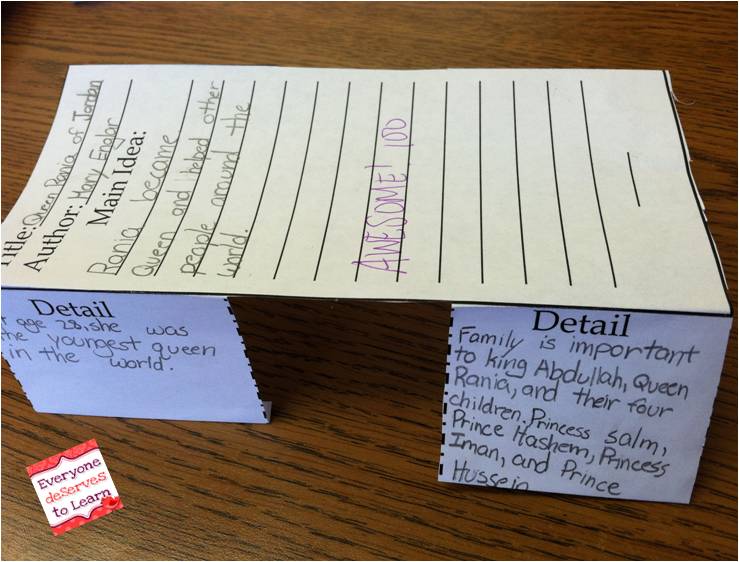 Title: Queen Rania of Jordan
Author: Hany Englar
Main Idea:
Rania became
Queen and helped other
people around the
world.
AWESOME! 100
Detail
age 28, she was
the youngest queen
in the world.
Detail
Family is important
to king Abdullah, Queen
Rania, and their four
children, Princess salm,
Prince Hashem, Princess
Iman, and Prince
Hussein
Everyone
deserves
to Learn